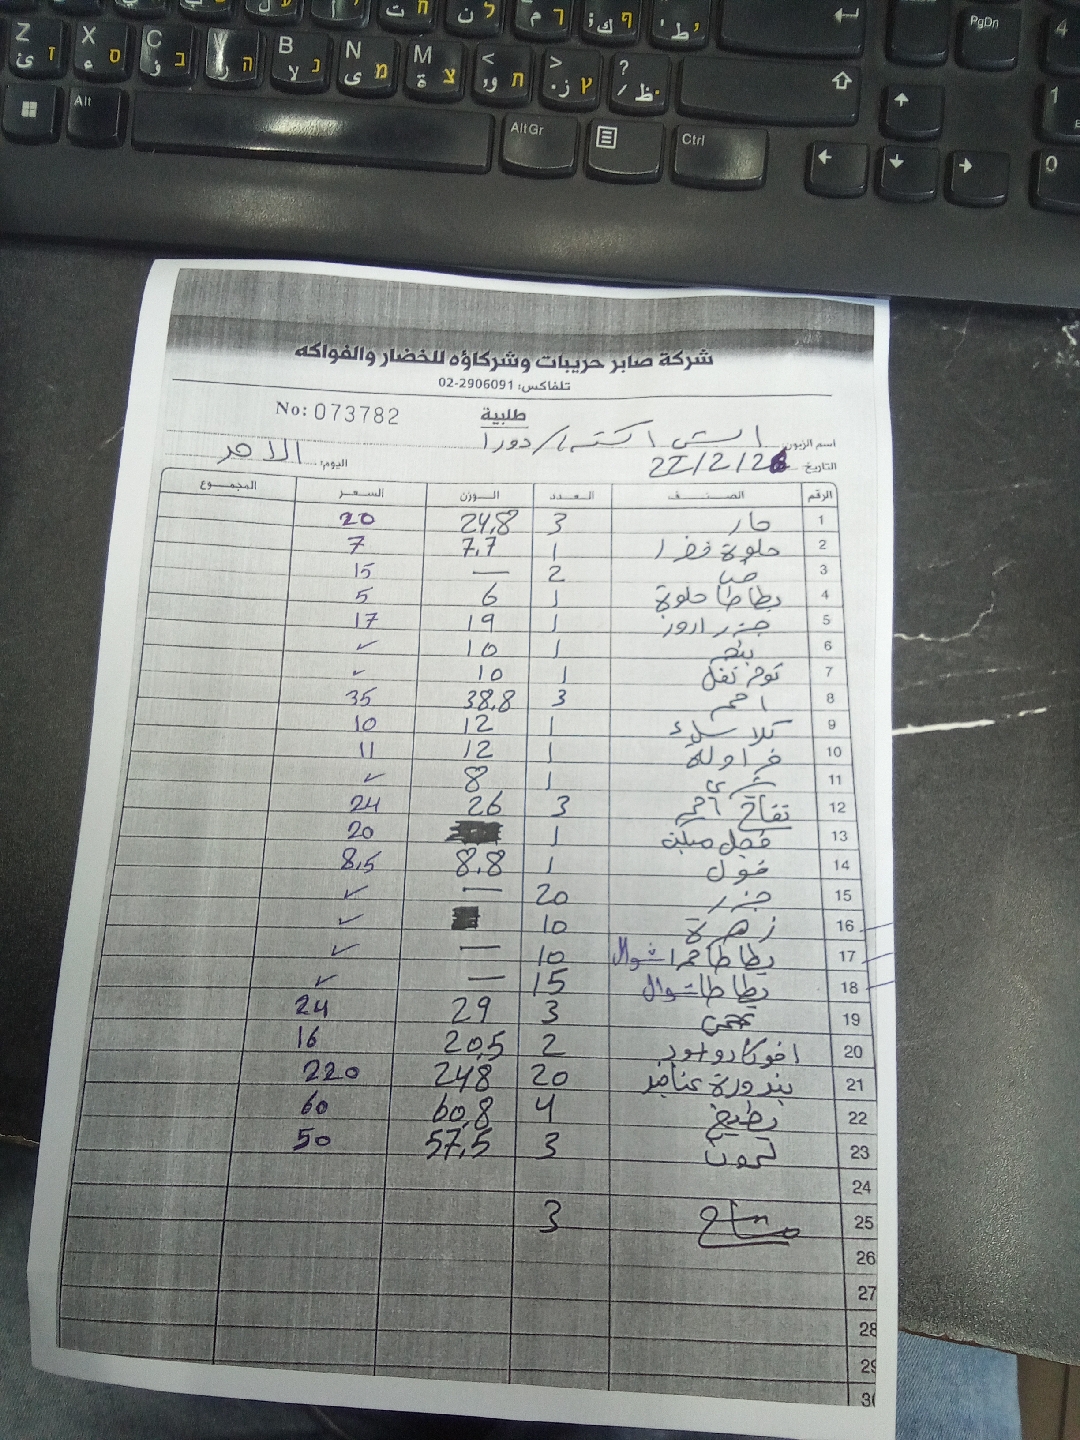 شركة صابر حريبات وشركاؤه للخضار والفواكه
تلفاكس: 02-2906091
No: 073782
طلبية
اسم الزبون: دورا
التاريخ 22/2/26
اليوم: الاحد
الرقم الصنف العدد الوزن السعر المجموع
1 حار 3 24,8 20
2 حلوة خضرا 1 7,7 7
3 2 — 15
4 بطاطا حلوة 1 6 5
5 جزر 1 19 17
6 1 10 ✓
7 توم تفل 1 10 ✓
8 احمر 3 38,8 35
9 1 12 10
10 فراولة 1 12 11
11 1 8 ✓
12 تفاح احمر 3 26 24
13 فجل 1 20
14 فول 1 8,8 8,5
15 جزر 20 — ✓
16 زهرة 10 ✓
17 بطاطا حمرا شوال 10 — ✓
18 بطاطا شوال 15 — ✓
19 3 29 24
20 افوكادو 2 20,5 16
21 بندورة عناقيد 20 248 220
22 بطيخ 4 60,8 60
23 ليمون 3 57,5 50
24
25 3
26
27
28
29
30
Z X C V B N M < > ?
Alt
AltGr
Ctrl
PgDn
4
1
0